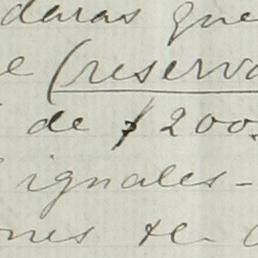 daras que
e (reserva
de $200
iguales-
nes te